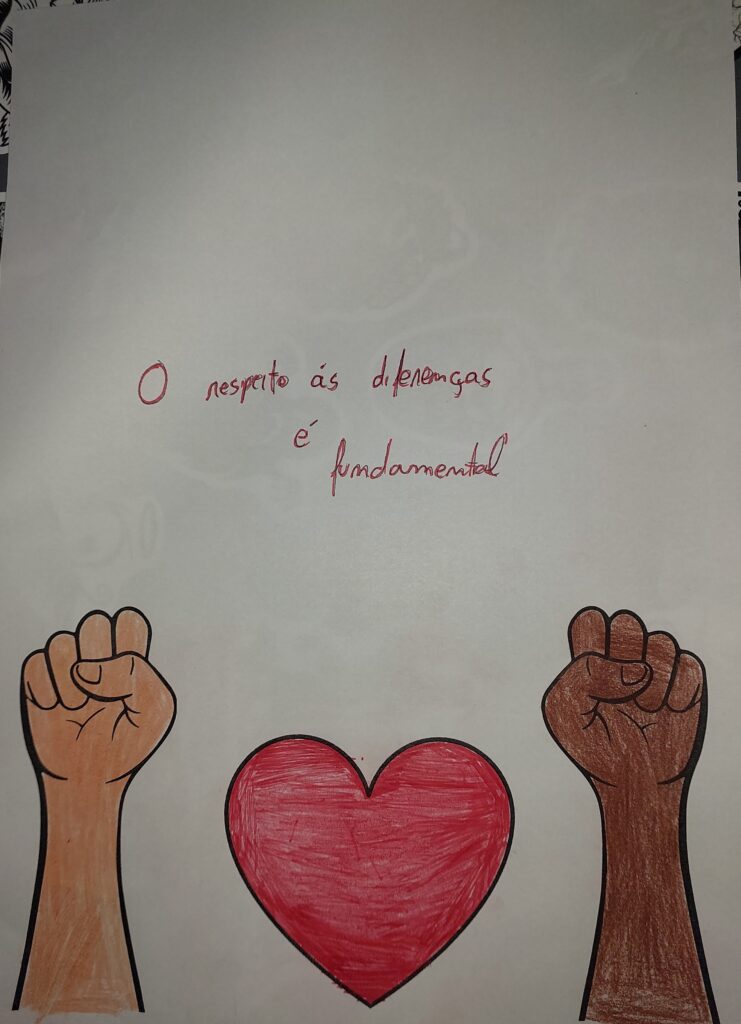 O respeito ás diferenças
é
fundamental